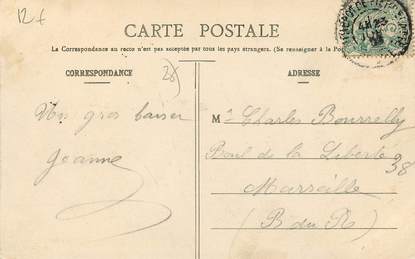 12f
CARTE POSTALE
La Correspondance au recto n'est pas acceptée par tous les pays étrangers. (Se renseigner à la Po
CORRESPONDANCE
ADRESSE
28
Un gros baiser
Jeanne
M Charles Bourrelly
Boul de la Liberté
38
Marseille
(B du R)